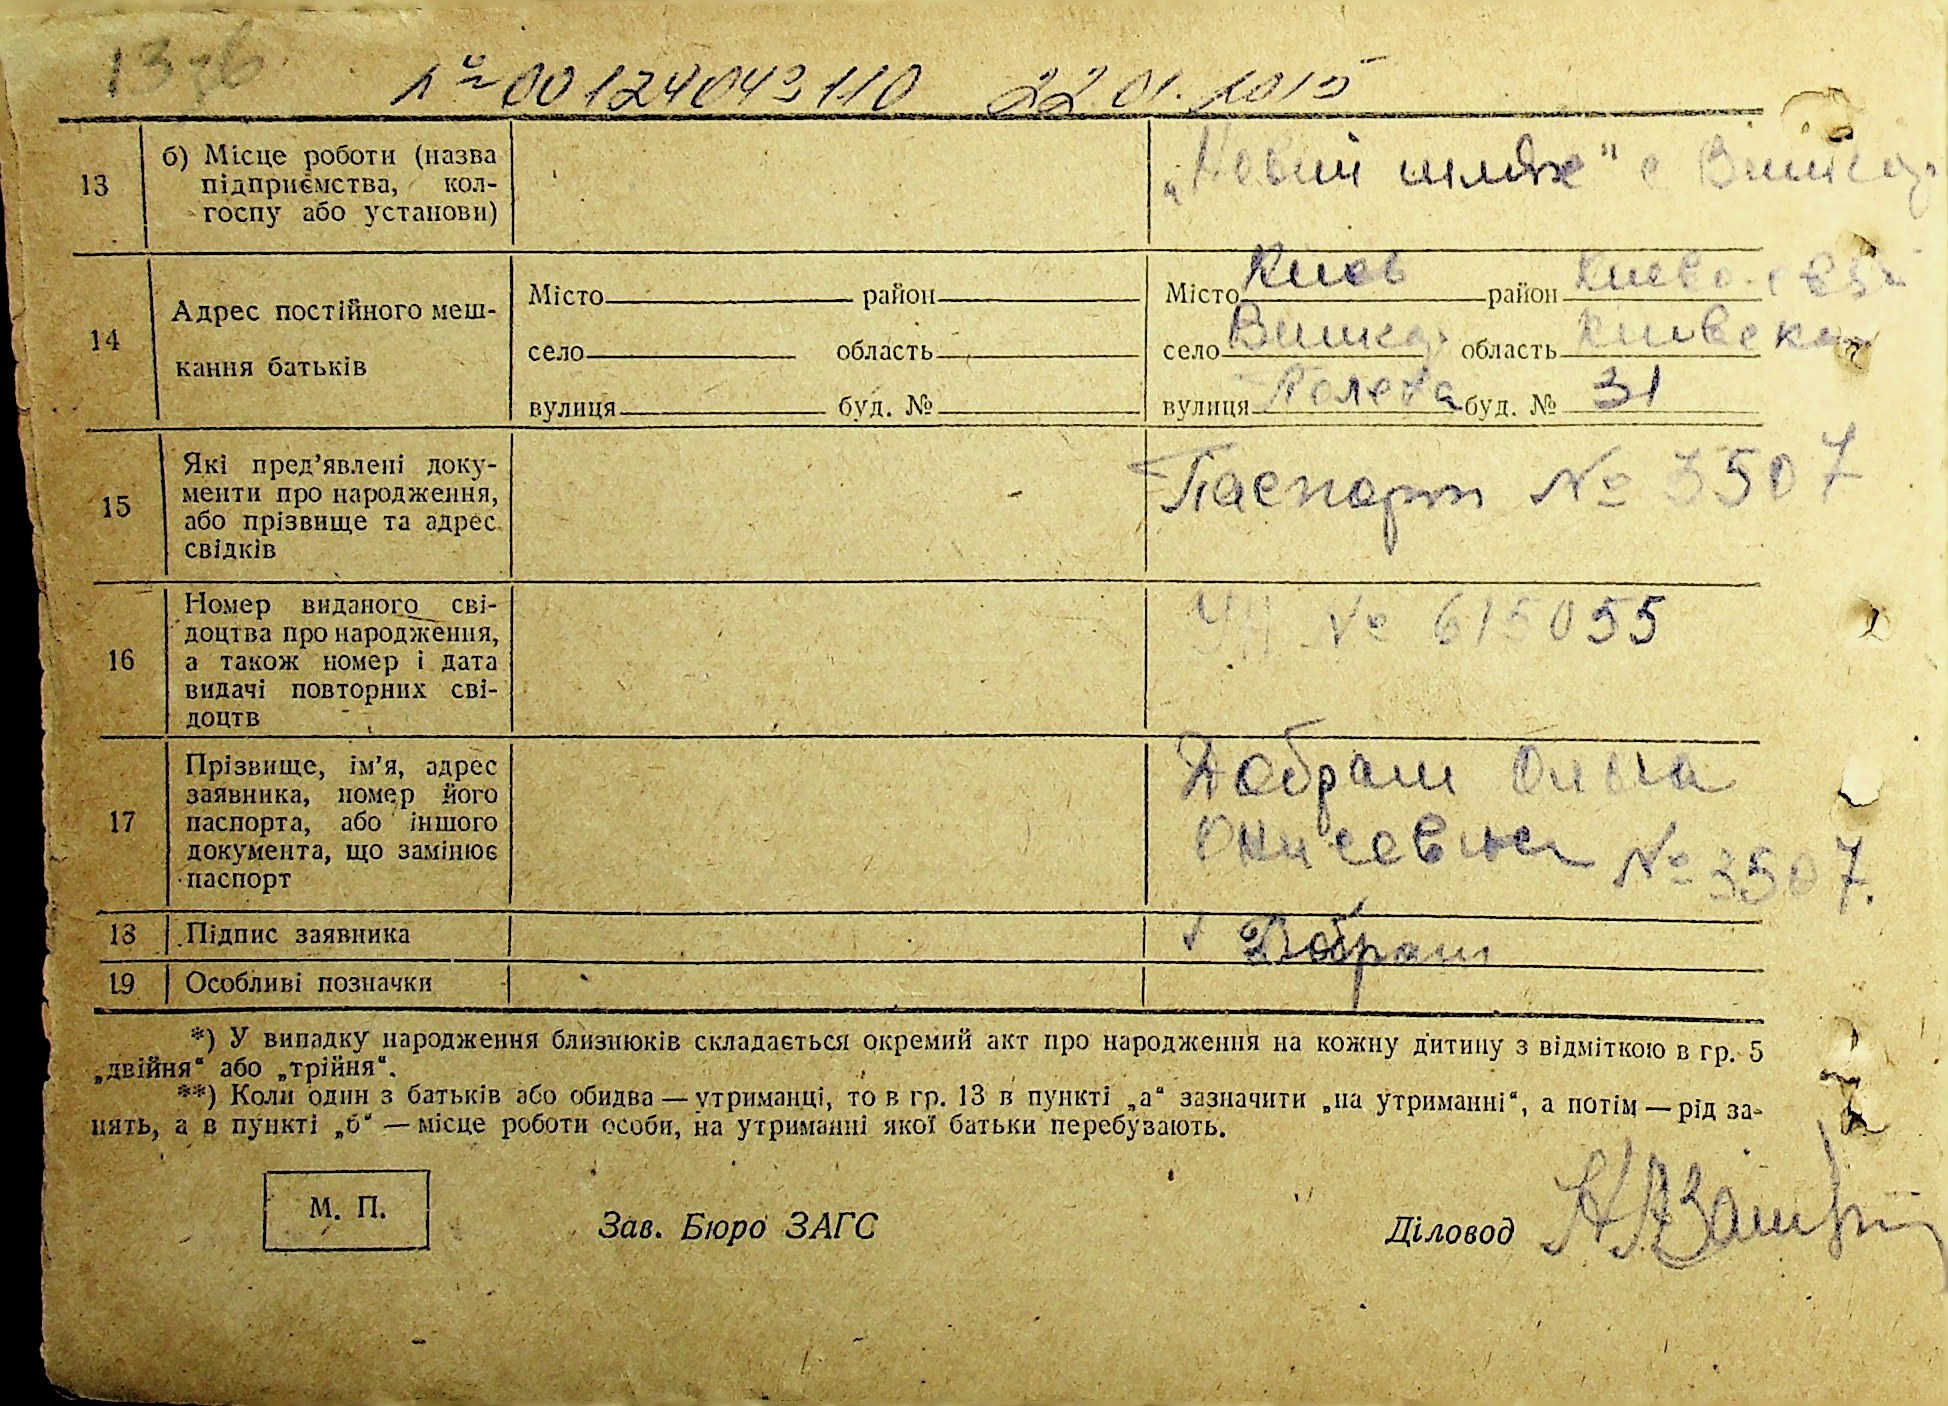 13зб
№ 00124043110 22.01.2015
13
б) Місце роботи (назва
підприємства, кол-
госпу або установи)
„Новий шлях“ с
14
Адрес постійного меш-
кання батьків
Місто район
село область
вулиця буд. №
Місто Киев район
село область
вулиця Полева буд. № 31
15
Які пред’явлені доку-
менти про народження,
або прізвище та адрес
свідків
Паспорт № 3507
16
Номер виданого сві-
доцтва про народження,
а також номер і дата
видачі повторних сві-
доцтв
№ 615055
17
Прізвище, ім’я, адрес
заявника, номер його
паспорта, або іншого
документа, що замінює
паспорт
Добраш Ольга
№ 3507.
18 Підпис заявника
Добраш
19 Особливі позначки
*) У випадку народження близнюків складається окремий акт про народження на кожну дитину з відміткою в гр. 5
„двійня“ або „трійня“.
**) Коли один з батьків або обидва — утриманці, то в гр. 13 в пункті „а“ зазначити „на утриманні“, а потім — рід за-
нять, а в пункті „б“ — місце роботи особи, на утриманні якої батьки перебувають.
М. П.
Зав. Бюро ЗАГС
Діловод